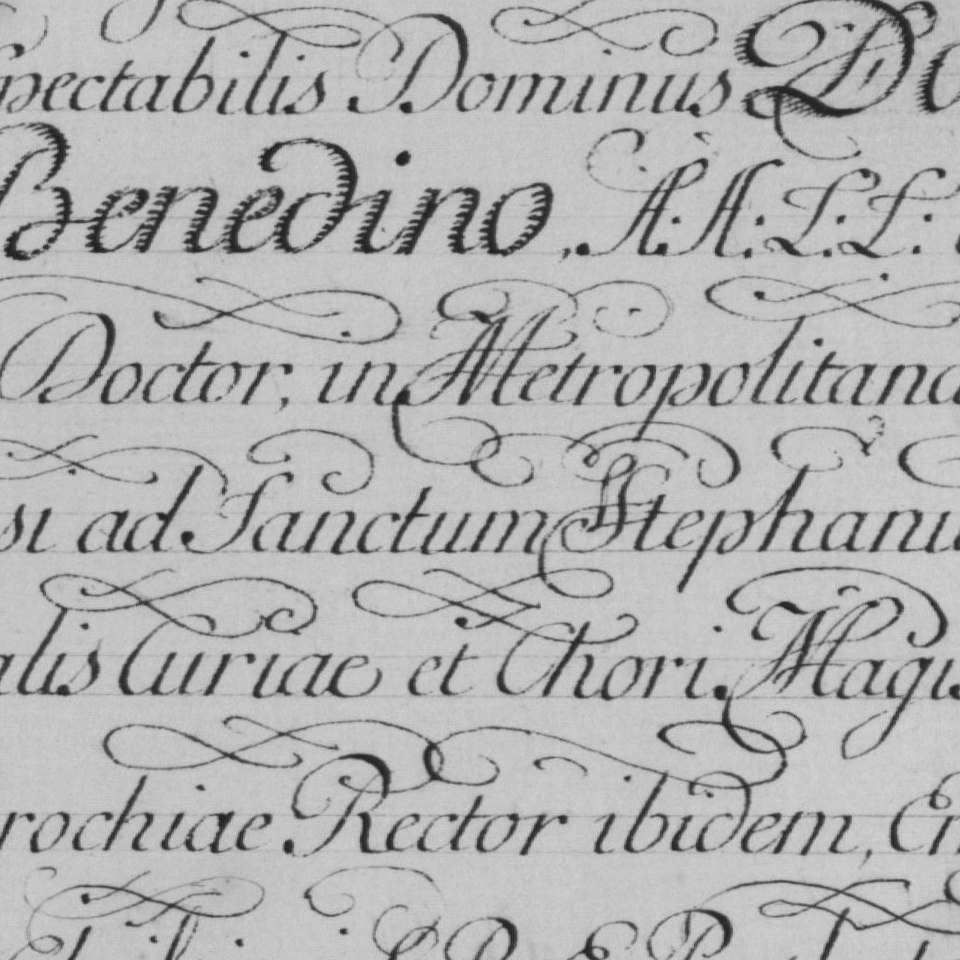 pectabilis Dominus Do
Benedino, A: A: L: L:
Doctor, in Metropolitana
si ad Sanctum Stephanu
alis Curiae et Chori Magis
rochiae Rector ibidem, Em